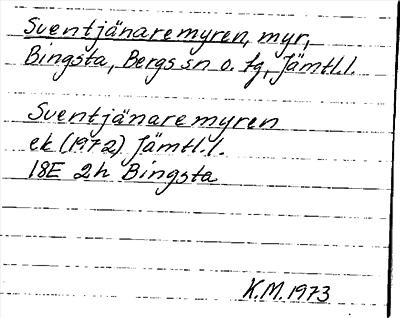 Sventjänaremyren, myr,
Bingsta, Bergs sn o. tg, Jämtl.l.
Sventjänaremyren
ek (1972) Jämtl.l.
18E 2h Bingsta
K.M. 1973